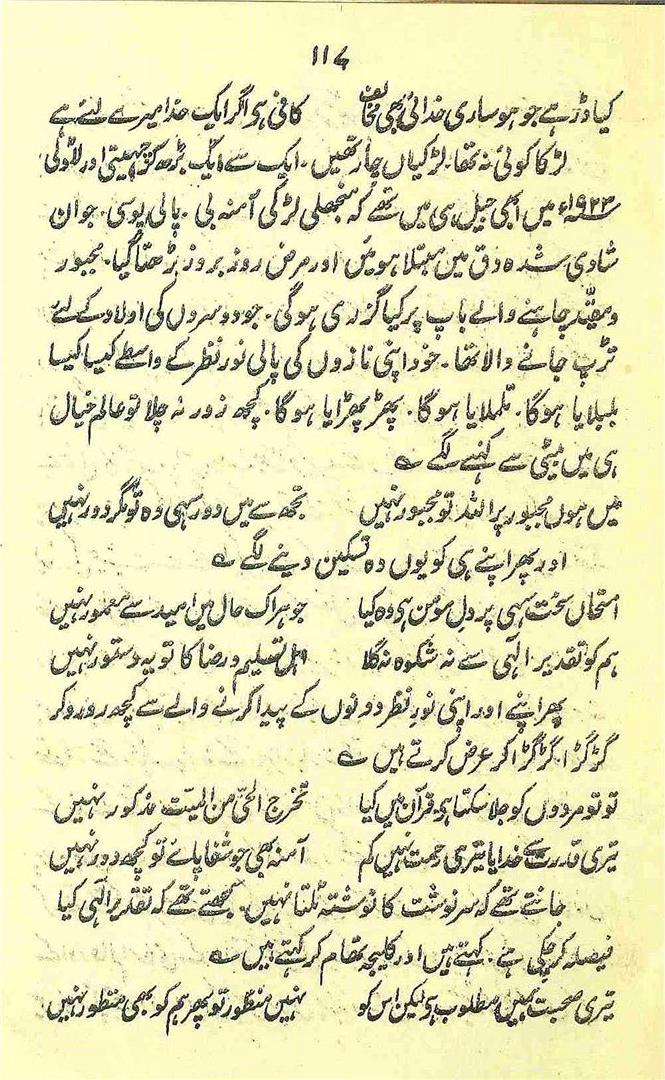 ۱۱۷
کیا ڈر ہے جو ہو ساری خدائی بھی مخالف کافی ہے اگر ایک خدا میرے لئے ہے
لڑکا کوئی نہ تھا۔ لڑکیاں چار تھیں۔ ایک سے ایک بڑھ کر چہیتی اور لاڈلی
۱۹۲۳ء میں ابھی جیل ہی میں تھے کہ منجھلی لڑکی آمنہ بی۔ پالی پوسی۔ جوان
شادی شدہ دق میں مبتلا ہوئیں اور مرض روز بروز بڑھتا گیا۔ مجبور
و مقیّد چاہنے والے باپ پر کیا گزری ہوگی۔ جو دوسروں کی اولاد کے لئے
تڑپ جانے والا تھا۔ خود اپنی نازوں کی پالی نور نظر کے واسطے کیسا کیسا
بلبلایا ہوگا۔ تلملایا ہوگا۔ پھڑپھڑایا ہوگا۔ کچھ زور نہ چلا تو عالم خیال
ہی میں بیٹی سے کہنے لگے ؎
میں ہوں مجبور پر اللہ تو مجبور نہیں تجھ سے میں دور سہی وہ تو مگر دور نہیں
اور پھر اپنے ہی کو یوں دہ تسکین دینے لگے ؎
امتحاں سخت سہی پر دل مومن ہی وہ کیا جو ہر اک حال میں امید سے معمور نہیں
ہم کو تقدیر الٰہی سے نہ شکوہ نہ گلا اہل تسلیم و رضا کا تو یہ دستور نہیں
پھر اپنے اور اپنی نورِ نظر دونوں کے پیدا کرنے والے سے کچھ رو رو کر
گڑگڑا گڑگڑا کر عرض کرتے ہیں ؎
تو تو مردوں کو جلا سکتا ہے قرآن میں کیا تخرج الحیّ من المیت مذکور نہیں
تیری قدرت سے خدایا تیری رحمت نہیں کم آمنہ بھی جو شفا پائے تو کچھ دور نہیں
جانتے تھے کہ سرنوشت کا نوشتہ ٹلتا نہیں۔ سمجھتے تھے کہ تقدیر الٰہی کیا
فیصلہ کر چکی ہے۔ کہتے ہیں اور کلیجہ تھام کر کہتے ہیں ؎
تیری صحت ہمیں مطلوب ہے لیکن اس کو نہیں منظور تو پھر ہم کو بھی منظور نہیں